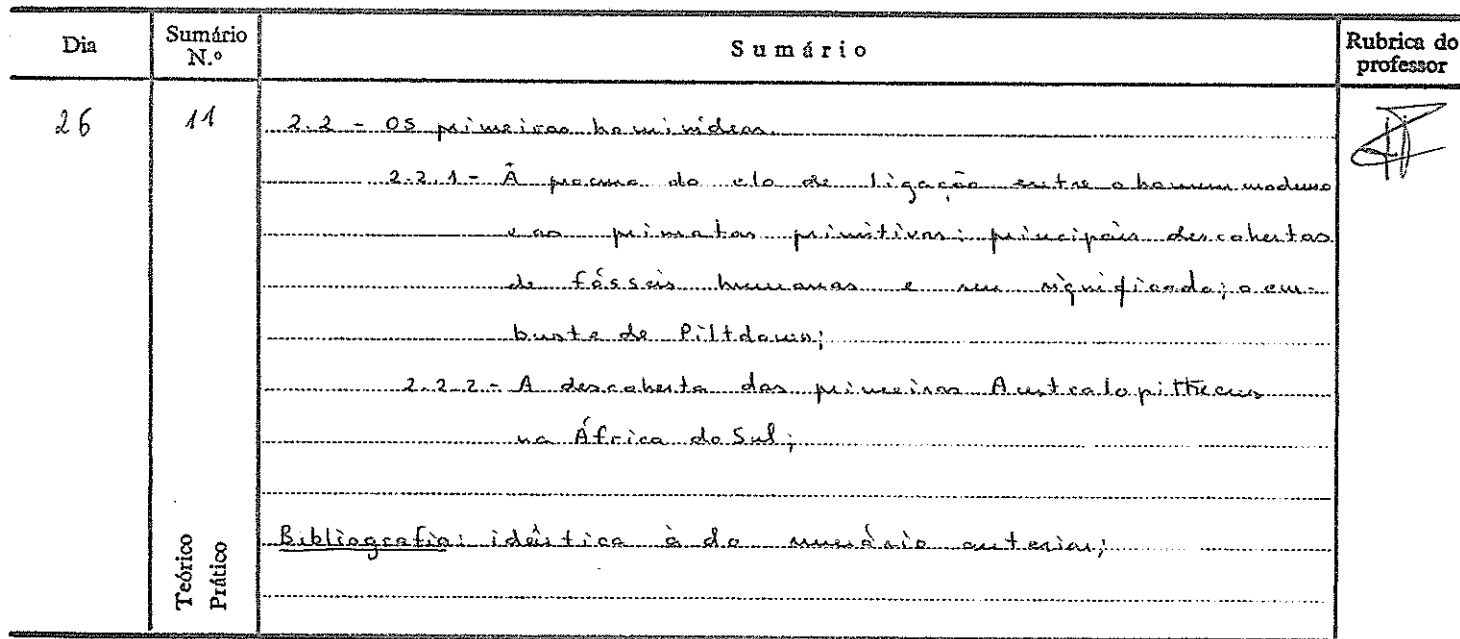 Dia
Sumário N.º
Sumário
Rubrica do professor
26
11
2.2 - Os primeiros hominídeos.
2.2.1 - À procura do elo de ligação entre o homem moderno
e os primatas primitivos; principais descobertas
de fósseis humanos e seu significado; o em-
buste de Piltdown;
2.2.2 - A descoberta dos primeiros Australopithecus
na África do Sul;
Bibliografia: idêntica à do sumário anterior;
Teórico
Prático